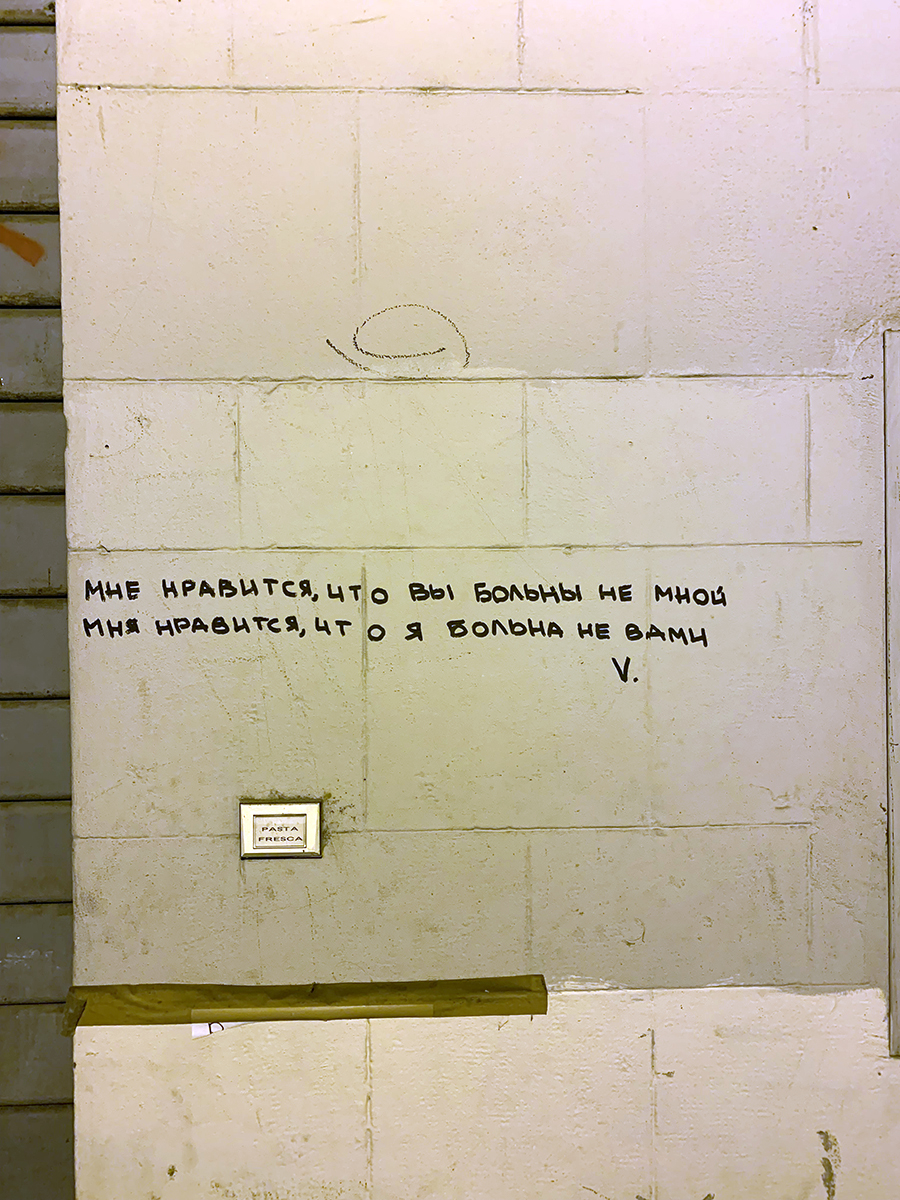 МНЕ НРАВИТСЯ, ЧТО ВЫ БОЛЬНЫ НЕ МНОЙ
МНЯ НРАВИТСЯ, ЧТО Я БОЛЬНА НЕ ВАМИ
V.
PASTA
FRESCA